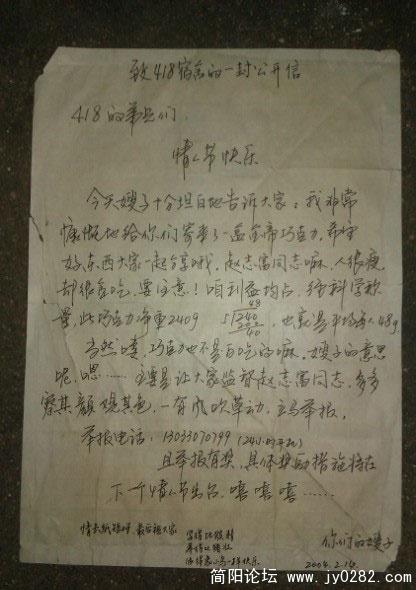 致418宿舍的一封公开信
418的弟兄们：
情人节快乐
今天嫂子十分坦白地告诉大家：我非常
慷慨地给你们寄来了一盒金帝巧克力，希望
好东西大家一起分享哦，赵志富同志嘛，人很瘦
却很贪吃，要注意！咱利益均占，经科学称
量，此巧克力净重240g 5)240 48 200 40 也就是平均每人48g，
当然喽，巧克力也不是白吃的嘛，嫂子的意思
呢，嗯……主要是让大家监督赵志富同志，多多
察其颜观其色，一有风吹草动，立马举报。
举报电话：13033070799（24小时开机）
且举报有奖，具体奖励措施将在
下个情人节出台，嘻嘻嘻……
最后祝大家
你们的嫂子
2004.2.14
简阳论坛 www.jy0282.com